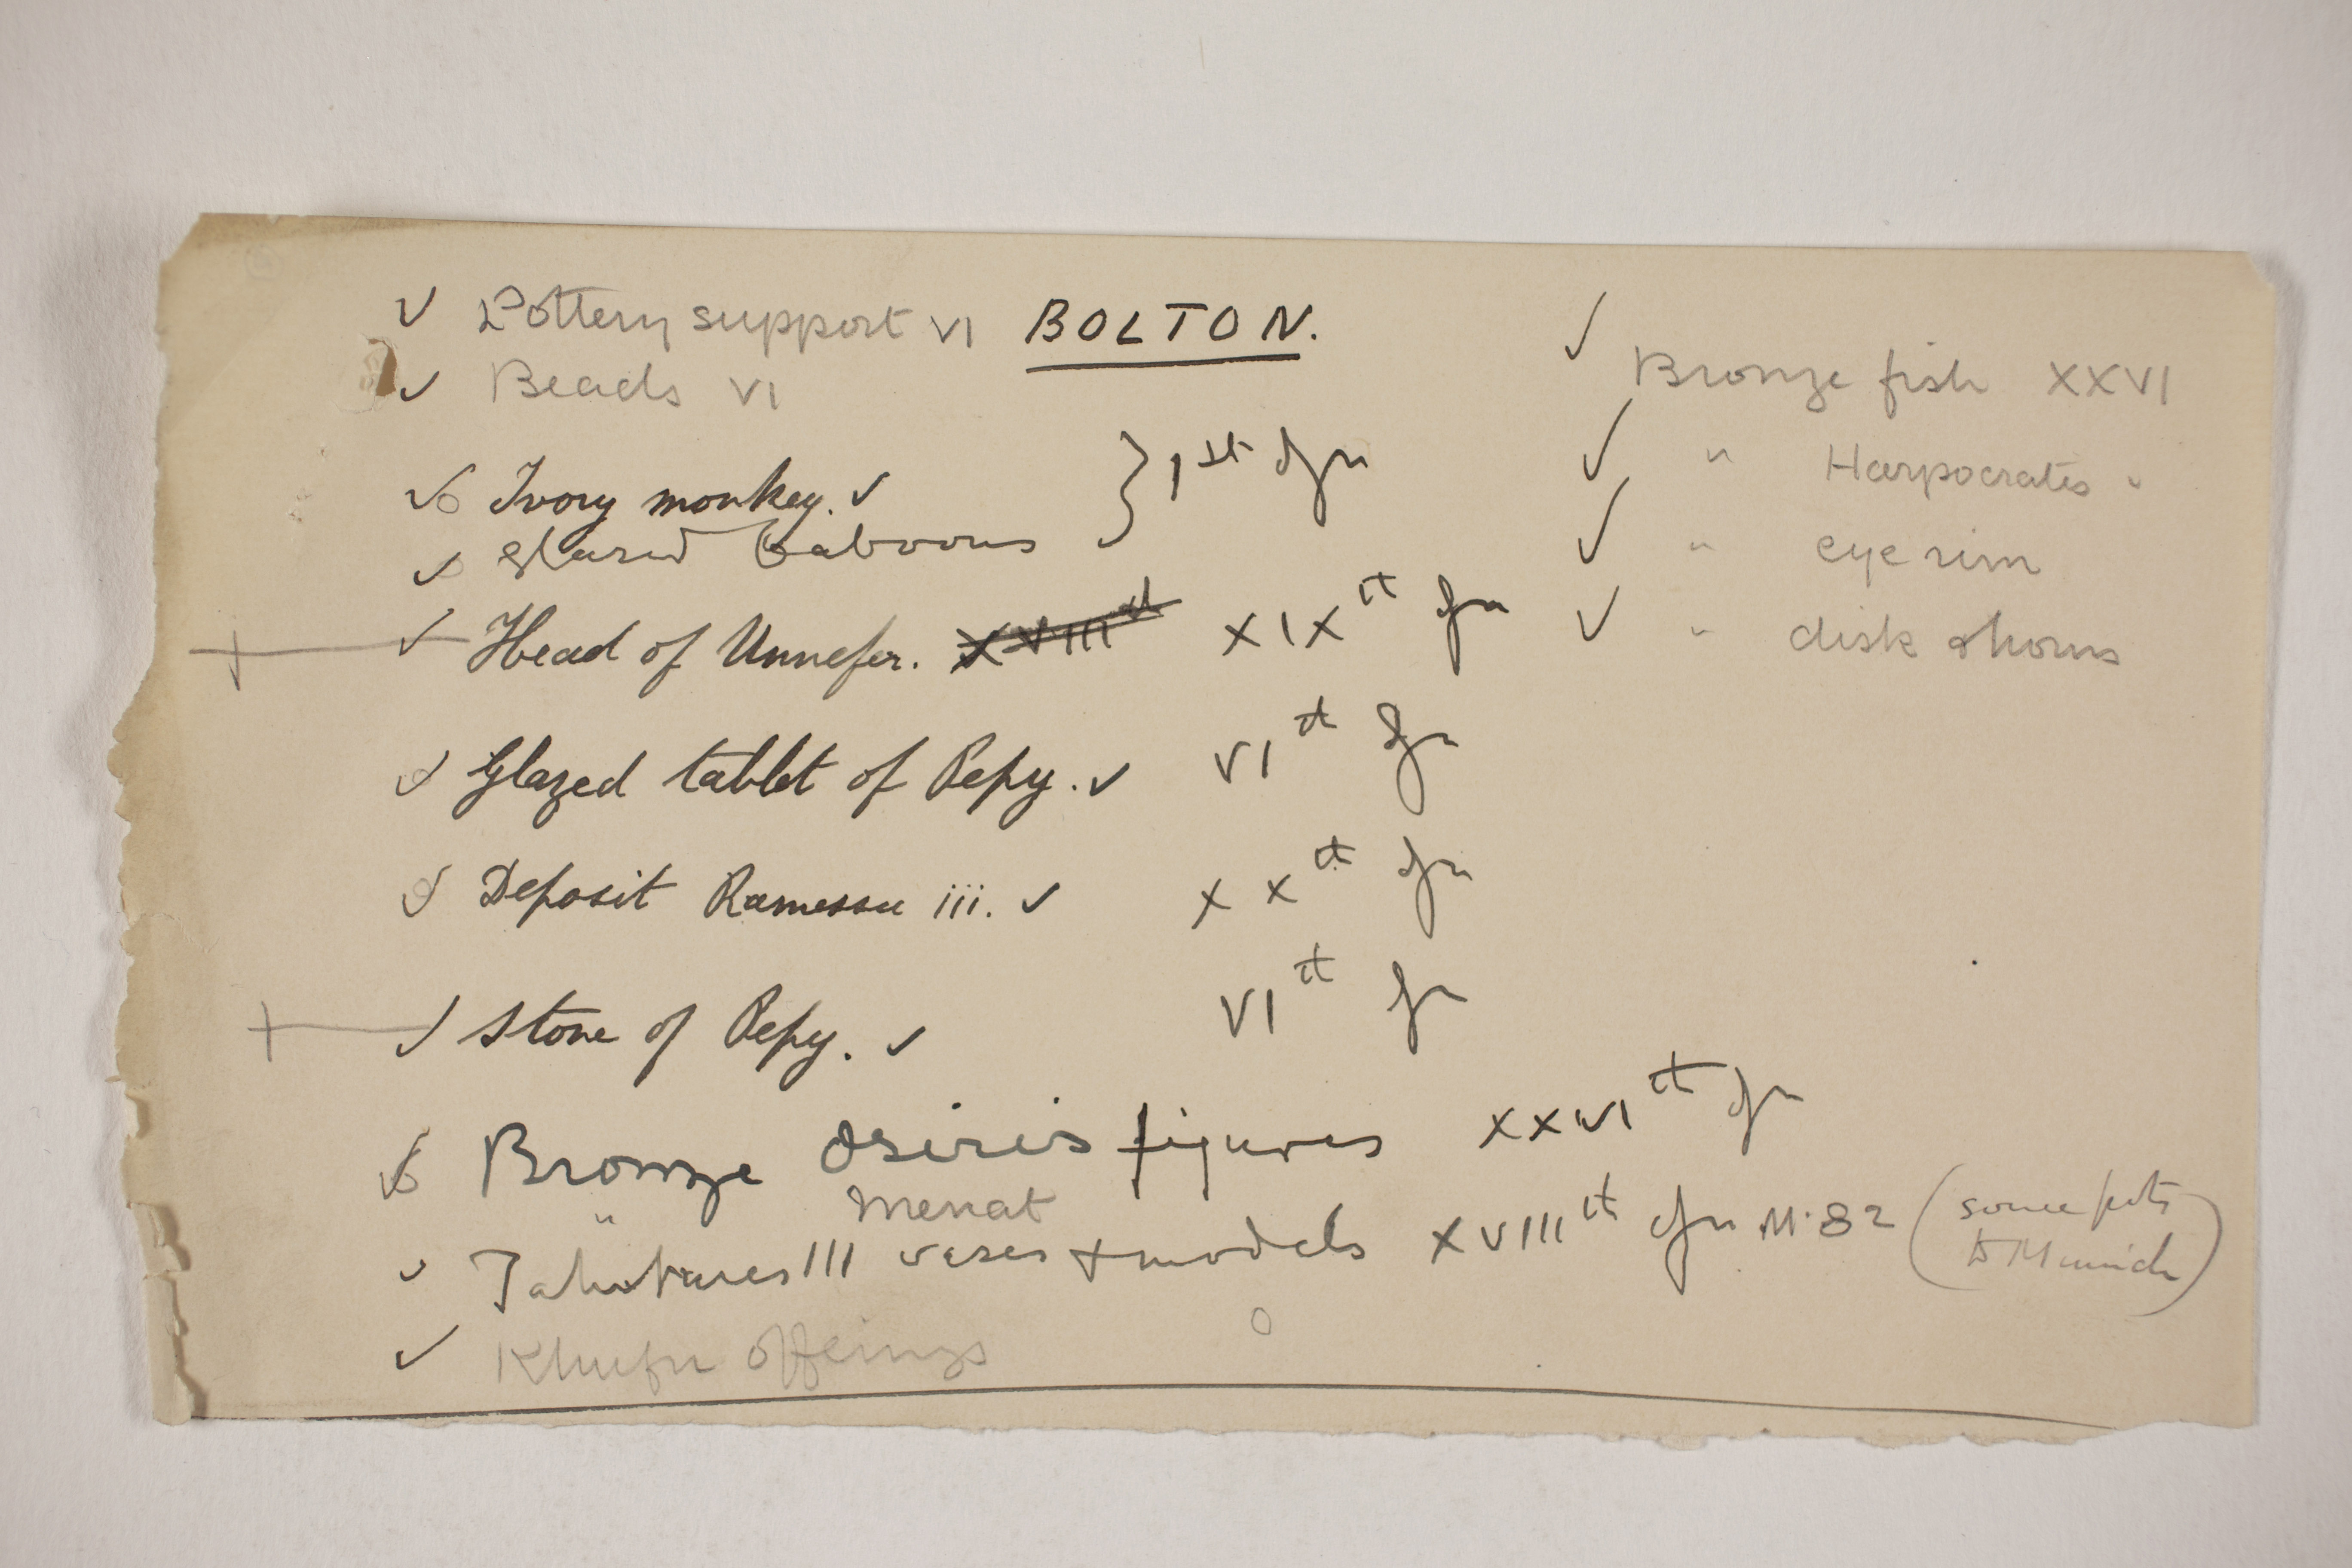 ✓ Pottery support VI BOLTON.
✓ Beads VI
✓ Ivory monkey. ✓ } 1st dyn
✓ glazed baboons
✓ Head of Unnefer. XVIIIth XIXth dyn
✓ Glazed tablet of Pepy. ✓ VIth dyn
✓ Deposit Ramessu iii. ✓ XXth dyn
✓ Stone of Pepy. ✓ VIth dyn
✓ Bronze Osiris figures XXVIth dyn
" Menat
✓ Tahutmes III vases + models XVIIIth dyn M.82 (some pots
to Munich)
✓ Khufu offerings
✓ Bronze fish XXVI
✓ " Harpocrates "
✓ " eye rim
✓ " disk & horns